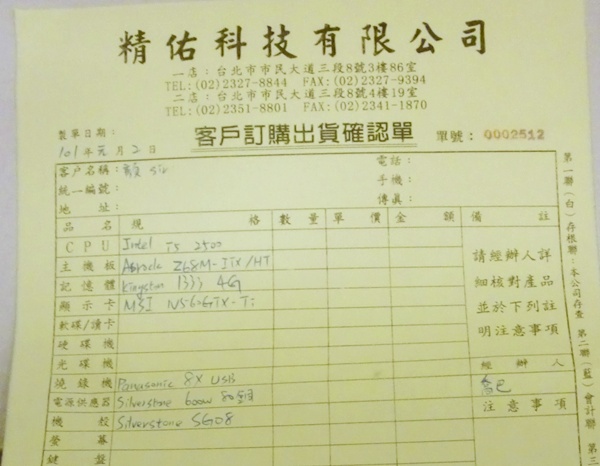 精佑科技有限公司
一店：台北市市民大道三段8號3樓86室
TEL:(02)2327-8844 FAX:(02)2327-9394
二店：台北市市民大道三段8號4樓19室
TEL:(02)2351-8801 FAX:(02)2341-1870
製單日期：
客戶訂購出貨確認單 單號：0002512
101年元月2日
客戶名稱： Sir 電話：
統一編號： 手機：
地址： 傳眞：
品名 規格 數量 單價 金額 備註
CPU Intel I5 2500
主機板 Asrock Z68M-ITX/HT
記憶體 Kingston 1333 4G
顯示卡 MSI N560GTX-Ti
軟碟/讀卡
硬碟機
光碟機
燒錄機 Panasonic 8X USB
電源供應器 Silverstone 600W 80
機殼 Silverstone SG08
螢幕
鍵盤
請經辦人詳
細核對產品
並於下列註
明注意事項
經辦人
注意事項
第一聯(白)存根聯：本公司存查 第二聯(藍)會計聯 第三